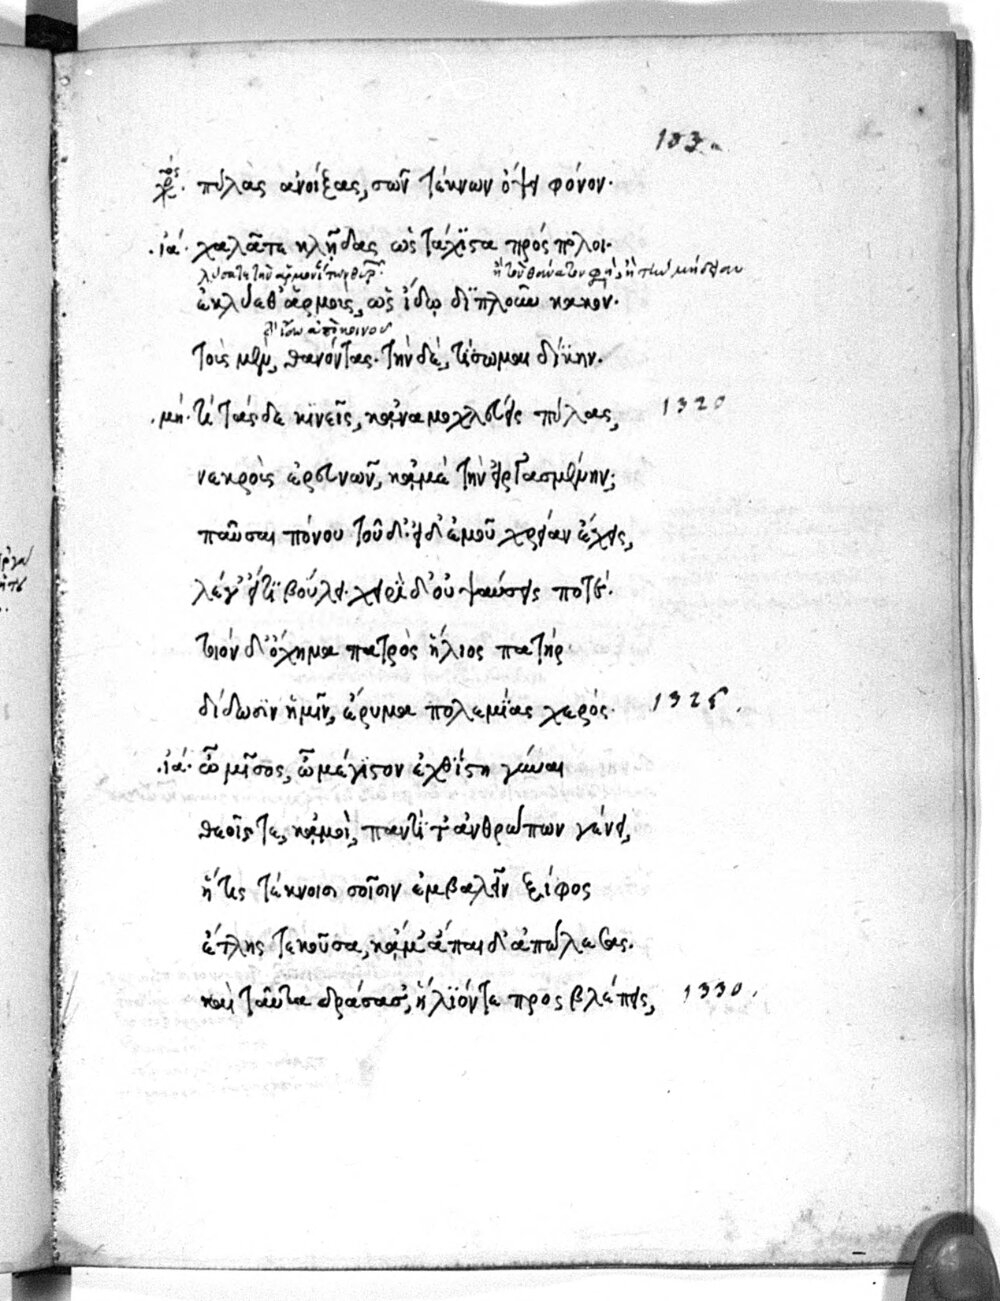 133.
χορός. πύλας ἀνοίξας, σῶν τέκνων ὄψει φόνον.
.ἰά. χαλᾶτε κλῇδας ὡς τάχιστα πρόσπολοι.
ἐκλύεθ' ἁρμοὺς, ὡς ἴδω διπλοῦν κακόν.
τοὺς μὲν, θανόντας. τὴν δὲ, τίσωμαι δίκην.
.μή. τί τάσδε κινεῖς, κἀναμοχλεύεις πύλας, 1320
νεκροὺς ἐρευνῶν, κἀμὲ τὴν εἰργασμένην;
παῦσαι πόνου τοῦδ'. εἰ δ' ἐμοῦ χρείαν ἔχεις,
λέγ' εἴ τι βούλει. χειρὶ δ' οὐ ψαύσεις ποτέ.
τοιόνδ' ὄχημα πατρὸς ἥλιος πατήρ
δίδωσιν ἡμῖν, ἔρυμα πολεμίας χερός. 1325.
.ἰά. ὦ μῖσος, ὦ μέγιστον ἐχθίστη γύναι
θεοῖς τε, κἀμοὶ, παντί τ' ἀνθρώπων γένει,
ἥτις τέκνοισι σοῖσιν ἐμβαλεῖν ξίφος
ἔτλης τεκοῦσα, κἄμ' ἄπαιδ' ἀπώλεσας.
καὶ ταῦτα δράσασ', ἥλιόν τε προσβλέπεις, 1330.